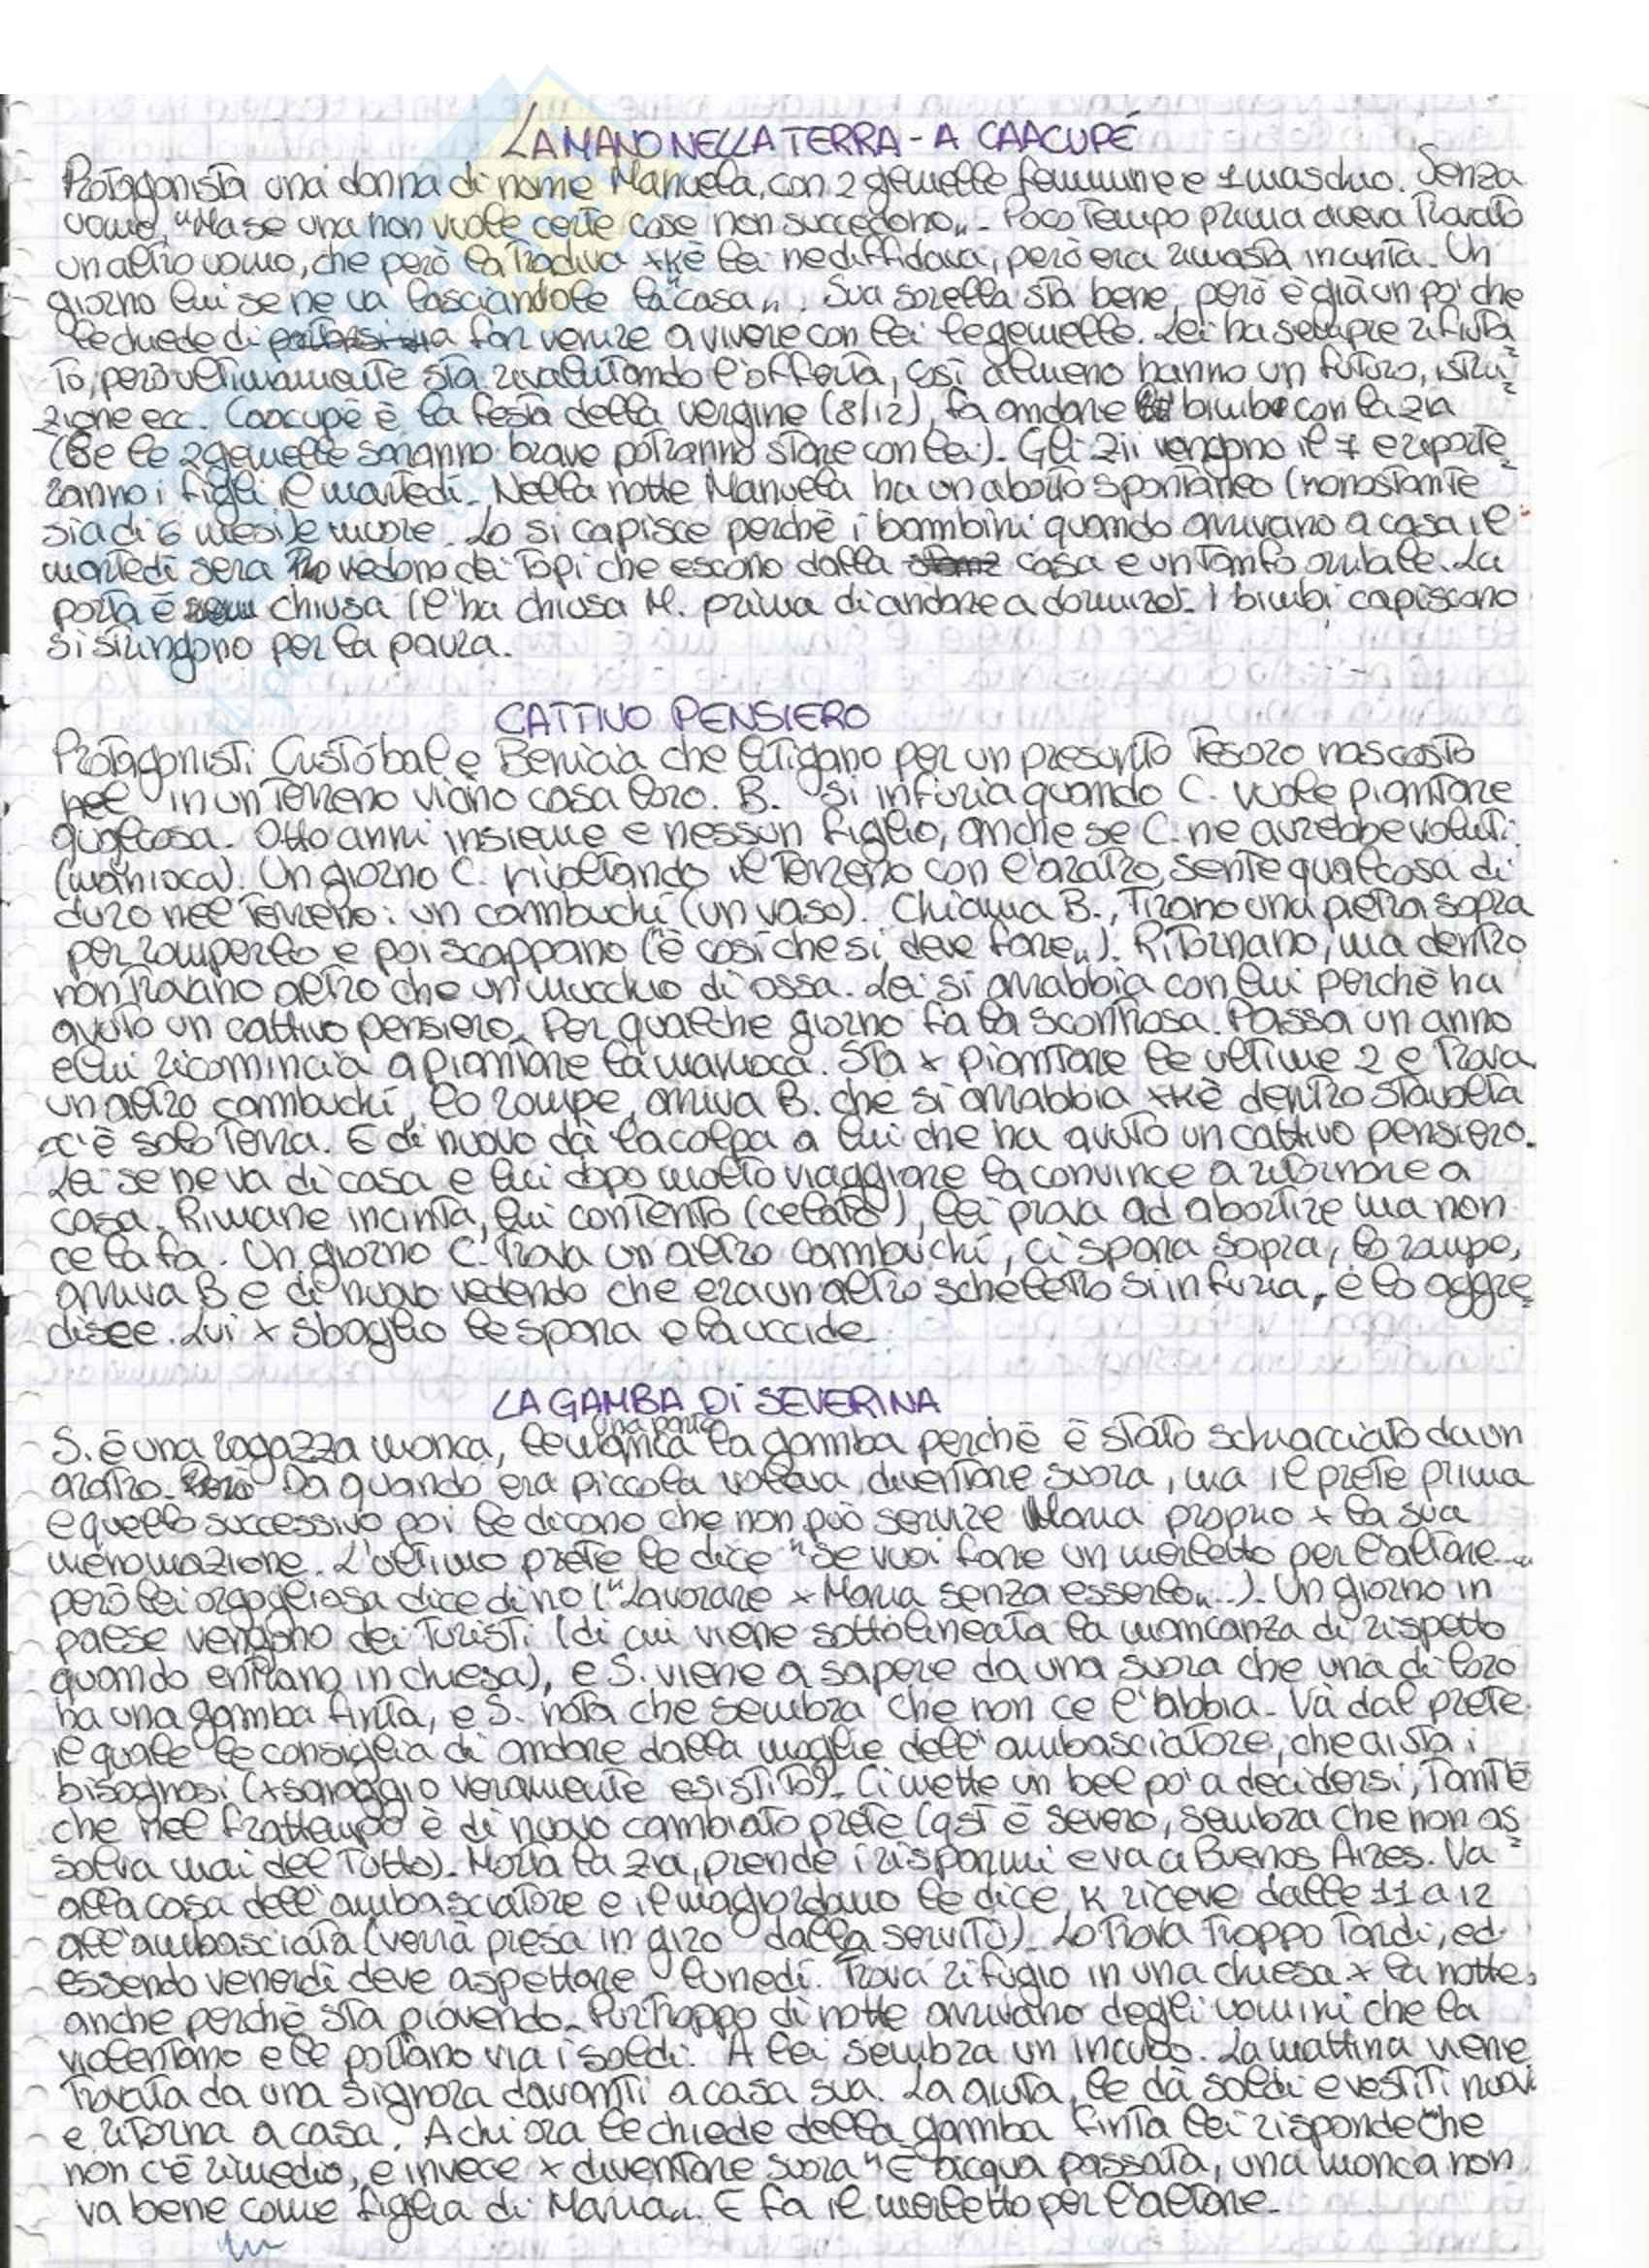 LA MANO NELLA TERRA - A CAACUPÉ
Protagonista una donna di nome Manuela, con 2 gemelle femmine e 1 maschio. Senza
uomo, "Ma se una non vuole certe cose non succedono". Poco tempo prima aveva trovato
un altro uomo, che però la tradiva xkè lei ne diffidava, però era rimasta incinta. Un
giorno lui se ne va lasciandole la "casa". Sua sorella sta bene, però è già un po' che
le chiede di far venire a vivere con lei le gemelle. Lei ha sempre rifiuta
to, però ultimamente sta rivalutando l'offerta, così almeno hanno un futuro, istru=
zione ecc. Caacupé è la festa della vergine (8/12), fa andare bimbi con la zia
(Se le 2 gemelle saranno brave potranno stare con lei). Gli zii vengono il 7 e riporte=
ranno i figli il martedì. Nella notte Manuela ha un aborto spontaneo (nonostante
sia di 6 mesi) e muore. Lo si capisce perchè i bambini quando arrivano a casa il
martedì sera vedono dei topi che escono dalla casa e un tanfo orribile. La
porta è chiusa (l'ha chiusa M. prima di andare a dormire). I bimbi capiscono
si stringono per la paura.
CATTIVO PENSIERO
Protagonisti Cristóbal e Benicia che litigano per un presunto tesoro nascosto
in un terreno vicino casa loro. B. si infuria quando C. vuole piantare
qualcosa. Otto anni insieme e nessun figlio, anche se C. ne avrebbe voluti.
(manioca). Un giorno C. rivoltando il terreno con l'aratro, sente qualcosa di
duro nel terreno: un cambuchí (un vaso). Chiama B., tirano una pietra sopra
per romperlo e poi scappano ("è così che si deve fare"). Ritornano, ma dentro
non trovano altro che un mucchio di ossa. Lei si arrabbia con lui perchè ha
avuto un cattivo pensiero. Per qualche giorno fa la scontrosa. Passa un anno
e lui ricomincia a piantare la manioca. Sta x piantare le ultime 2 e trova
un altro cambuchí, lo rompe, arriva B. che si arrabbia xkè dentro stavolta
c'è solo terra. E di nuovo dà la colpa a lui che ha avuto un cattivo pensiero.
Lei se ne va di casa e lui dopo molto viaggiare la convince a ritornare a
casa. Rimane incinta, lui contento (celato), lei prova ad abortire ma non
ce la fa. Un giorno C. trova un altro cambuichí, ci spara sopra, lo rompe,
arriva B e di nuovo vedendo che era un altro scheletro si infuria, e lo aggre=
disce. Lui x sbaglio le spara e la uccide.
LA GAMBA DI SEVERINA
S. è una ragazza monca, le manca una parte la gamba perchè è stato schiacciato da un
aratro. Da quando era piccola voleva diventare suora, ma il prete prima
e quello successivo poi le dicono che non può servire Maria proprio x la sua
menomazione. L'ultimo prete le dice "se vuoi fare un merletto per l'altare..."
però lei orgogliosa dice di no ("Lavorare x Maria senza esserlo"...). Un giorno in
paese vengono dei turisti (di cui viene sottolineata la mancanza di rispetto
quando entrano in chiesa), e S. viene a sapere da una suora che una di loro
ha una gamba finta, e S. nota che sembra che non ce l'abbia. Va dal prete
il quale le consiglia di andare dalla moglie dell'ambasciatore, che aiuta i
bisognosi (xsonaggio veramente esistito). Ci mette un bel po' a decidersi, tant'è
che nel frattempo è di nuovo cambiato prete (qst è severo, sembra che non as=
solva mai del tutto). Morta la zia, prende i risparmi e va a Buenos Aires. Va
alla casa dell'ambasciatore e il maggiordomo le dice k riceve dalle 11 a 12
all'ambasciata (verrà presa in giro dalla servitù). Lo trova troppo tardi, ed
essendo venerdì deve aspettare lunedì. Trova rifugio in una chiesa x la notte,
anche perchè sta piovendo. Purtroppo di notte arrivano degli uomini che la
violentano e le portano via i soldi. A lei sembra un incubo. La mattina viene
trovata da una signora davanti a casa sua. La aiuta, le dà soldi e vestiti nuovi
e ritorna a casa. A chi ora le chiede della gamba finta lei risponde che
non c'è rimedio, e invece x diventare suora "È acqua passata, una monca non
va bene come figlia di Maria". E fa il merletto per l'altare.